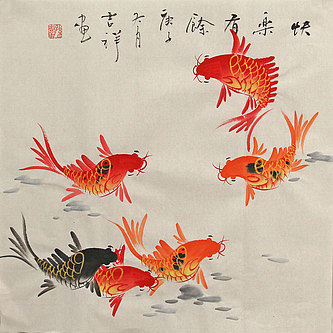 快乐有馀
庚子
冬月
吉祥
画